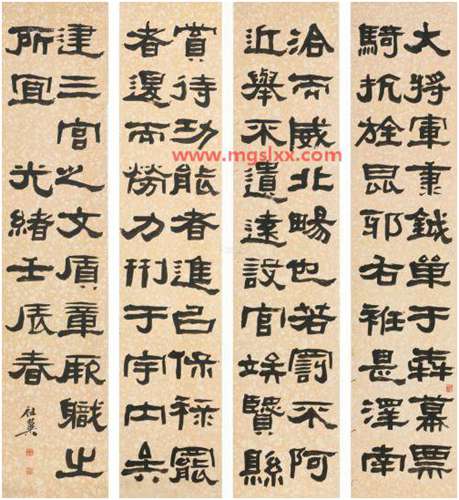 大將軍秉鉞單于犇幕票
騎抗旌昆邪右衽是澤南
洽而威北暢也若罰不阿
近舉不遺遠設官竢賢縣
賞待功能者進以保祿罷
者退而勞力刑于宇内矣
建三宮之文質章厥職之
所宜 光緒壬辰春
www.mgslxx.com